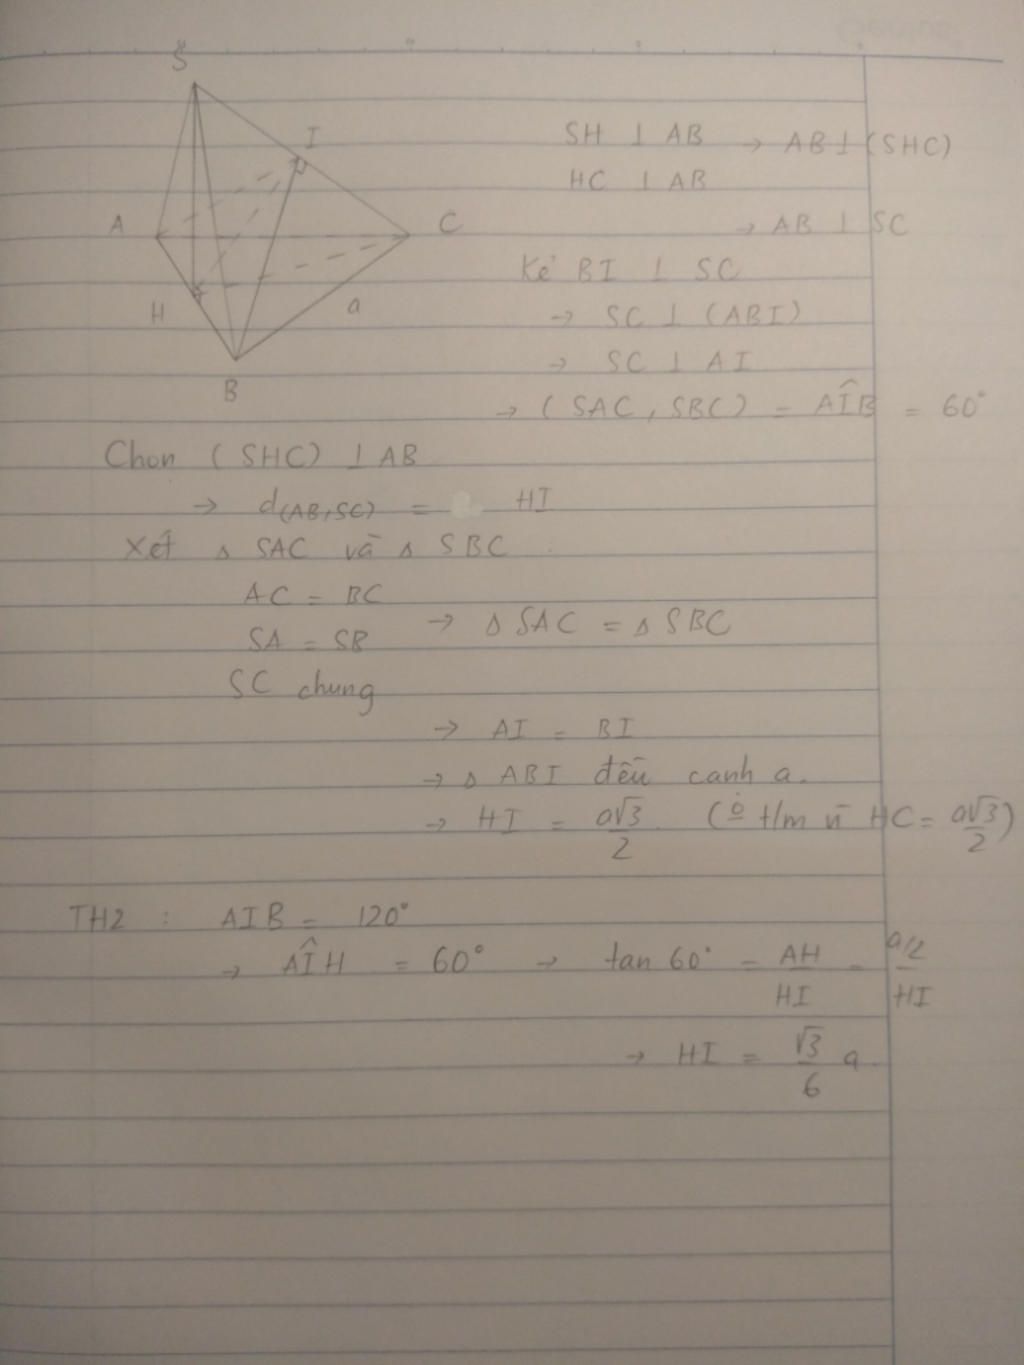 S
I
A
C
H
a
B
SH ⊥ AB → AB ⊥ (SHC)
HC ⊥ AB
→ AB ⊥ SC
Kẻ BI ⊥ SC
→ SC ⊥ (ABI)
→ SC ⊥ AI
→ (SAC, SBC) = AÎB = 60°
Chọn (SHC) ⊥ AB
→ d(AB,SC) = HI
Xét Δ SAC và Δ SBC
AC = BC
SA = SB → Δ SAC = Δ SBC
SC chung
→ AI = BI
→ Δ ABI đều cạnh a.
→ HI = a√3/2 (t/m vì HC = a√3/2)
TH2 : AIB = 120°
→ AÎH = 60° → tan 60° = AH/HI = a/2/HI
→ HI = √3/6 a